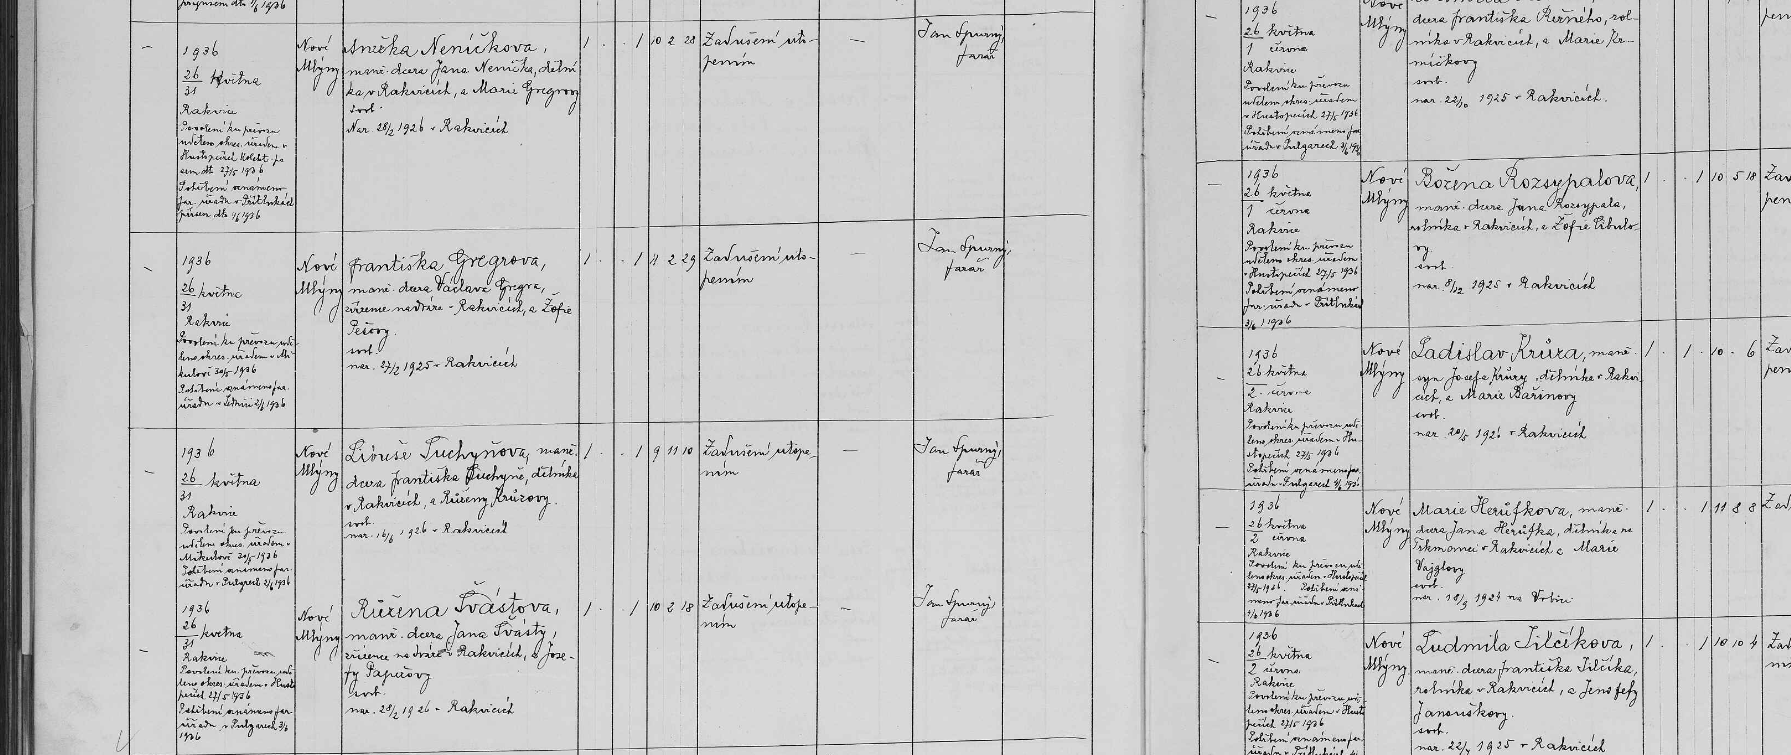 1936
26 května
31
Rakvice
Povolení ku převozu
uděleno okres. úřadem v
sem dt 27/5 1936
Pohřbení oznámeno
far. úřadu v Přítlukách
přísem dto 1/6 1936
Nové
Mlýny
Anežka Neničkova,
manž. dcera Jana Nenička, dělní
ka v Rakvicích, a Marie Gregrovy
svob.
Nar. 28/2 1926 v Rakvicích
1 . . 1 10 2 28
Zadušení uto-
pením
—
Jan Spurný,
farář
1936
26 května
31
Rakvice
Povolení ku převozu udě
leno okres. úřadem v Mi
kulově 30/5 1936
Pohřbení oznámeno far.
úřadu v Lednici 2/6 1936
Nové
Mlýny
Františka Gregrova,
manž. dcera Václava Gregra,
zřízence nadráze v Rakvicích, a Žofie
svob.
nar. 27/2 1925 v Rakvicích
1 . . 1 4 2 29
Zadušení uto-
pením
—
Jan Spurný,
farář
1936
26 května
31
Rakvice
Povolení ku převozu
uděleno okres. úřadem v
Mikulově 30/5 1936
Pohřbení oznámeno far.
úřadu v Pulgarech 2/6 1936
Nové
Mlýny
Libuše Suchyňova, manž.
dcera Františka Suchyně, dělníka
v Rakvicích, a Růženy Krůzovy.
svob.
nar. 16/6 1926 v Rakvicích
1 . . 1 9 11 10
Zadušení utope-
ním
—
Jan Spurný,
farář
1936
26 května
31
Rakvice
Povolení ku převozu udě
leno okres. úřadem v Husto
pečích 27/5 1936
Pohřbení oznámeno far.
úřadu v Pulgarech 3/6
1936
Nové
Mlýny
Růžena Švástova,
manž. dcera Jana Švásty,
zřízence na dráze v Rakvicích, a Jose-
fy
svob.
nar. 28/2 1926 v Rakvicích
1 . . 1 10 2 18
Zadušení utope-
ním
—
Jan Spurný
farář
1936
26 května
1 června
Rakvice
Povolení ku převozu
uděleno okres. úřadem
v Hustopečích 27/5 1936
Pohřbení oznámeno far.
úřadu v Pulgarech 3/6 1936
Nové
Mlýny
dcera Františka Řezného, rol-
níka v Rakvicích, a Marie
svob.
nar. 22/10 1925 v Rakvicích.
1936
26 května
1 června
Rakvice
Povolení ku převozu
uděleno okres. úřadem
v Hustopečích 27/5 1936
Pohřbení oznámeno
far. úřadu v Přítlukách
3/6 1936
Nové
Mlýny
Božena Rozsypalova,
manž. dcera Jana Rozsypala,
rolníka v Rakvicích, a Žofie Cibulo-
vy.
svob.
nar. 8/12 1925 v Rakvicích
1 . . 1 10 5 18
Zad
pen
1936
26 května
2. června
Rakvice
Povolení ku převozu udě
leno okres. úřadem v Hu-
stopečích 27/5 1936
Pohřbení oznámeno far.
úřadu v Pulgarech 4/6 1936
Nové
Mlýny
Ladislav Krůza, manž.
syn Josefa Krůzy, dělníka v Rakvi
cích, a Marie Bařinovy
svob.
nar. 20/5 1926 v Rakvicích
1 . 1 . 10 - 6
Zad
pen
1936
26 května
2 června
Rakvice
Povolení ku převozu udě
leno okres. úřadem v Hustopečích
27/5 1936. Pohřbení ozná
meno far. úřadu v Přítlukách
4/6 1936
Nové
Mlýny
Marie Herůfkova, manž.
dcera Jana Herůfka, dělníka na
Trkmance v Rakvicích a Marie
Vajglovy
svob.
nar. 18/9 1924 na Vrbici
1 . . 1 11 8 8
Zad
1936
26 května
2 června
Rakvice
Povolení ku převozu udě-
leno okres. úřadem v Husto
pečích 27/5 1936
Pohřbení oznámeno far.
úřadu v Přítlukách 4/6
Nové
Mlýny
Ludmila Tilčíkova,
manž. dcera Františka Tilčíka,
rolníka v Rakvicích, a Jenofefy
Janouškovy.
svob.
nar. 22/7 1925 v Rakvicích
1 . . 1 10 10 4
Zad